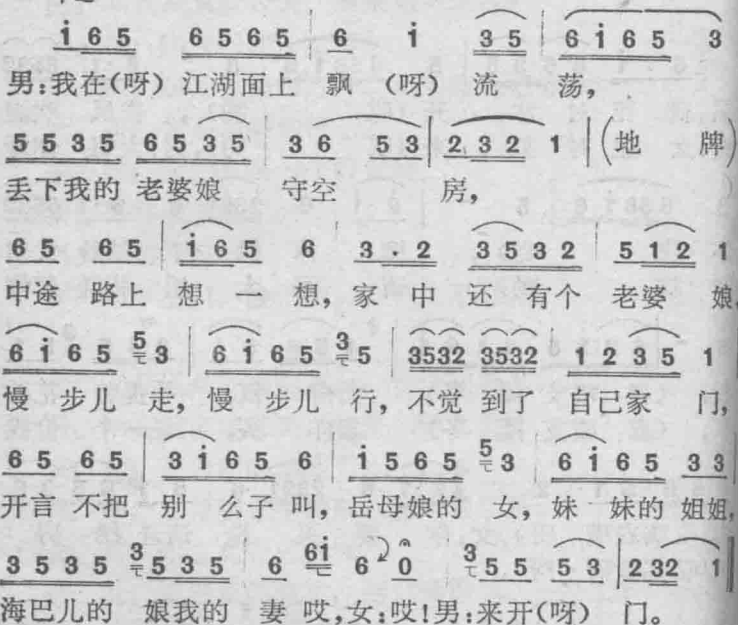 i 6 5 6 5 6 5 | 6 i 3 5 | 6 i 6 5 3
男:我在(呀) 江湖面上 飘 (呀) 流 荡,
5 5 3 5 6 5 3 5 | 3 6 5 3 | 2 3 2 1 | (地 牌)
丢下我的 老婆娘 守空 房,
6 5 6 5 | i 6 5 6 3 · 2 3 5 3 2 | 5 1 2 1
中途 路上 想 想, 家 中 还 有个 老婆 娘,
6 i 6 5 5 3 | 6 i 6 5 3 5 | 3532 3532 1 2 3 5 1
慢 步儿 走, 慢 步儿 行, 不觉 到了 自己家 门,
6 5 6 5 | 3 i 6 5 6 | i 5 6 5 5 3 | 6 i 6 5 3 3
开言 不把 别 么子 叫, 岳母娘的 女, 妹 妹的 姐姐,
3 5 3 5 3 5 3 5 | 6 6i 6 0 3 5 5 5 3 | 2 32 1
海巴儿的 娘我的 妻 哎,女:哎!男:来开(呀) 门。